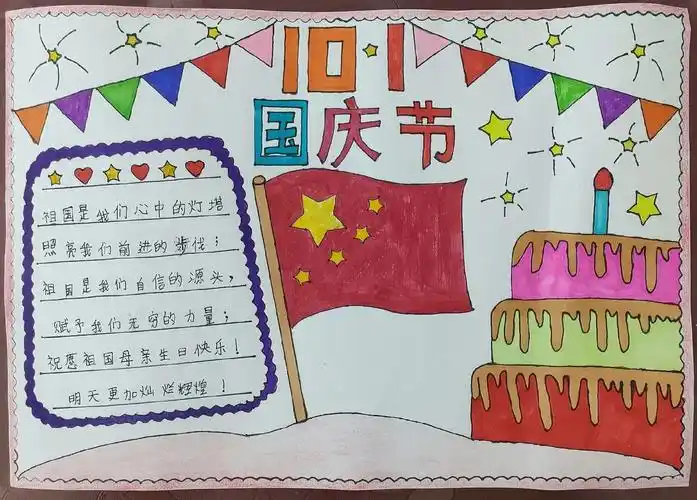 10·1
国庆节
祖国是我们心中的灯塔
照亮我们前进的步伐；
祖国是我们自信的源头，
赋予我们无穷的力量；
祝愿祖国母亲生日快乐！
明天更加灿烂辉煌！